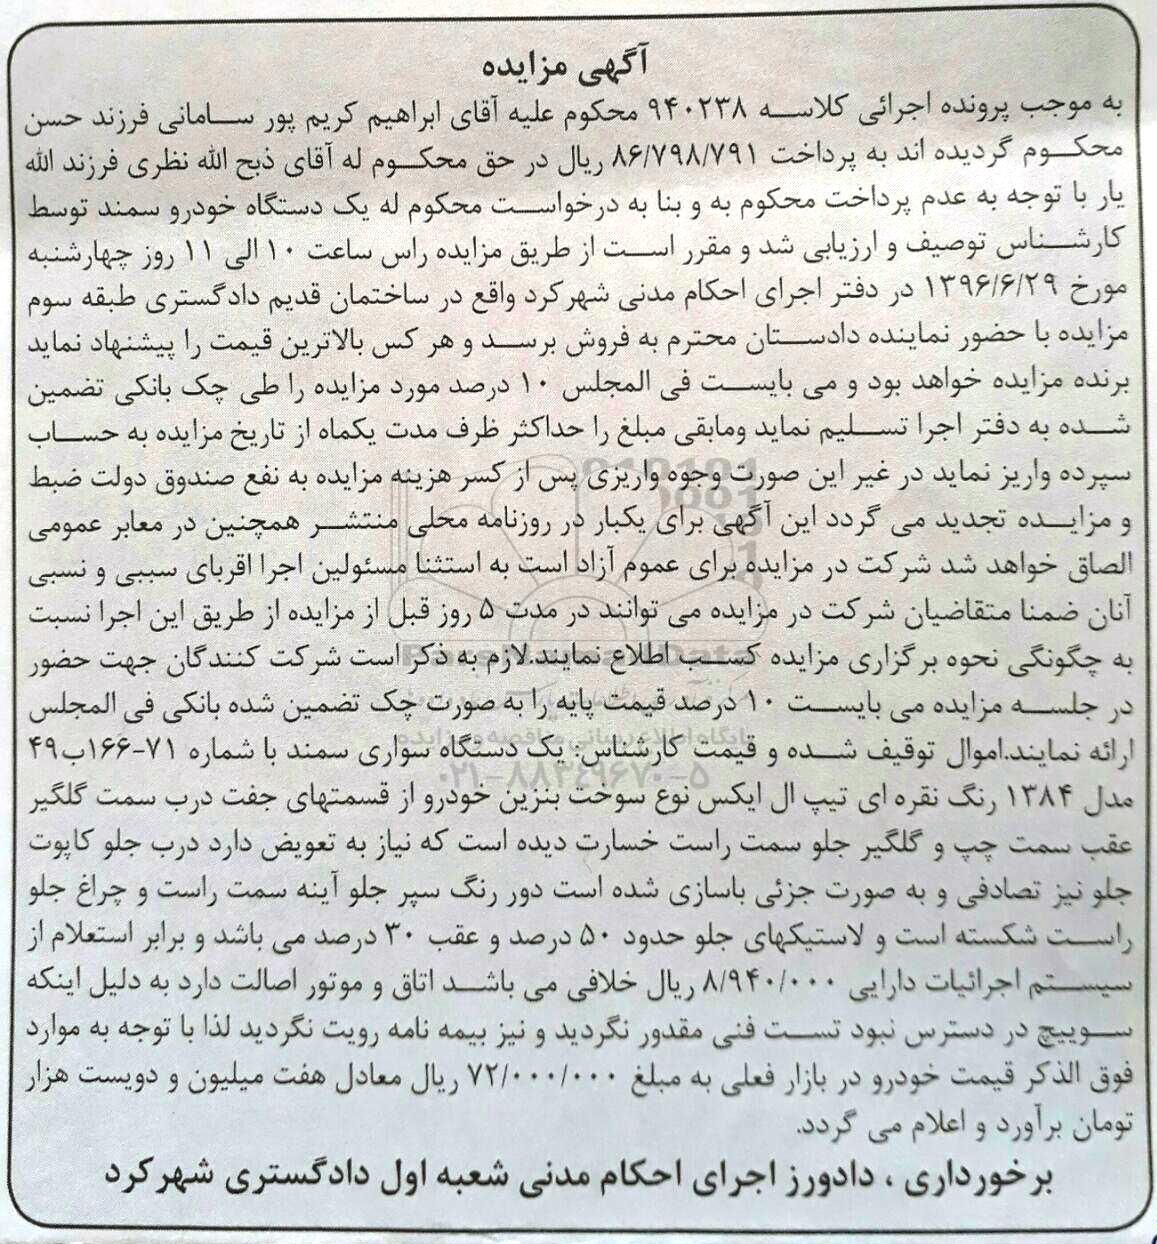 آگهی مزایده
به موجب پرونده اجرائی کلاسه ۹۴۰۲۳۸ محکوم علیه آقای ابراهیم کریم پور سامانی فرزند حسن
محکوم گردیده اند به پرداخت ۸۶/۷۹۸/۷۹۱ ریال در حق محکوم له آقای ذبح الله نظری فرزند الله
یار با توجه به عدم پرداخت محکوم به و بنا به درخواست محکوم له یک دستگاه خودرو سمند توسط
کارشناس توصیف و ارزیابی شد و مقرر است از طریق مزایده راس ساعت ۱۰ الی ۱۱ روز چهارشنبه
مورخ ۱۳۹۶/۶/۲۹ در دفتر اجرای احکام مدنی شهرکرد واقع در ساختمان قدیم دادگستری طبقه سوم
مزایده با حضور نماینده دادستان محترم به فروش برسد و هر کس بالاترین قیمت را پیشنهاد نماید
برنده مزایده خواهد بود و می بایست فی المجلس ۱۰ درصد مورد مزایده را طی چک بانکی تضمین
شده به دفتر اجرا تسلیم نماید ومابقی مبلغ را حداکثر ظرف مدت یکماه از تاریخ مزایده به حساب
سپرده واریز نماید در غیر این صورت وجوه واریزی پس از کسر هزینه مزایده به نفع صندوق دولت ضبط
و مزایده تجدید می گردد این آگهی برای یکبار در روزنامه محلی منتشر همچنین در معابر عمومی
الصاق خواهد شد شرکت در مزایده برای عموم آزاد است به استثنا مسئولین اجرا اقربای سببی و نسبی
آنان ضمنا متقاضیان شرکت در مزایده می توانند در مدت ۵ روز قبل از مزایده از طریق این اجرا نسبت
به چگونگی نحوه برگزاری مزایده کسب اطلاع نمایند.لازم به ذکر است شرکت کنندگان جهت حضور
در جلسه مزایده می بایست ۱۰ درصد قیمت پایه را به صورت چک تضمین شده بانکی فی المجلس
ارائه نمایند.اموال توقیف شده و قیمت کارشناس: یک دستگاه سواری سمند با شماره ۷۱-۱۶۶ب۴۹
مدل ۱۳۸۴ رنگ نقره ای تیپ ال ایکس نوع سوخت بنزین خودرو از قسمتهای جفت درب سمت گلگیر
عقب سمت چپ و گلگیر جلو سمت راست خسارت دیده است که نیاز به تعویض دارد درب جلو کاپوت
جلو نیز تصادفی و به صورت جزئی باسازی شده است دور رنگ سپر جلو آینه سمت راست و چراغ جلو
راست شکسته است و لاستیکهای جلو حدود ۵۰ درصد و عقب ۳۰ درصد می باشد و برابر استعلام از
سیستم اجرائیات دارایی ۸/۹۴۰/۰۰۰ ریال خلافی می باشد اتاق و موتور اصالت دارد به دلیل اینکه
سوییچ در دسترس نبود تست فنی مقدور نگردید و نیز بیمه نامه رویت نگردید لذا با توجه به موارد
فوق الذکر قیمت خودرو در بازار فعلی به مبلغ ۷۲/۰۰۰/۰۰۰ ریال معادل هفت میلیون و دویست هزار
تومان برآورد و اعلام می گردد.
برخورداری ، دادورز اجرای احکام مدنی شعبه اول دادگستری شهرکرد
۰۲۱-۸۸۳۴۹۶۷۰-۵